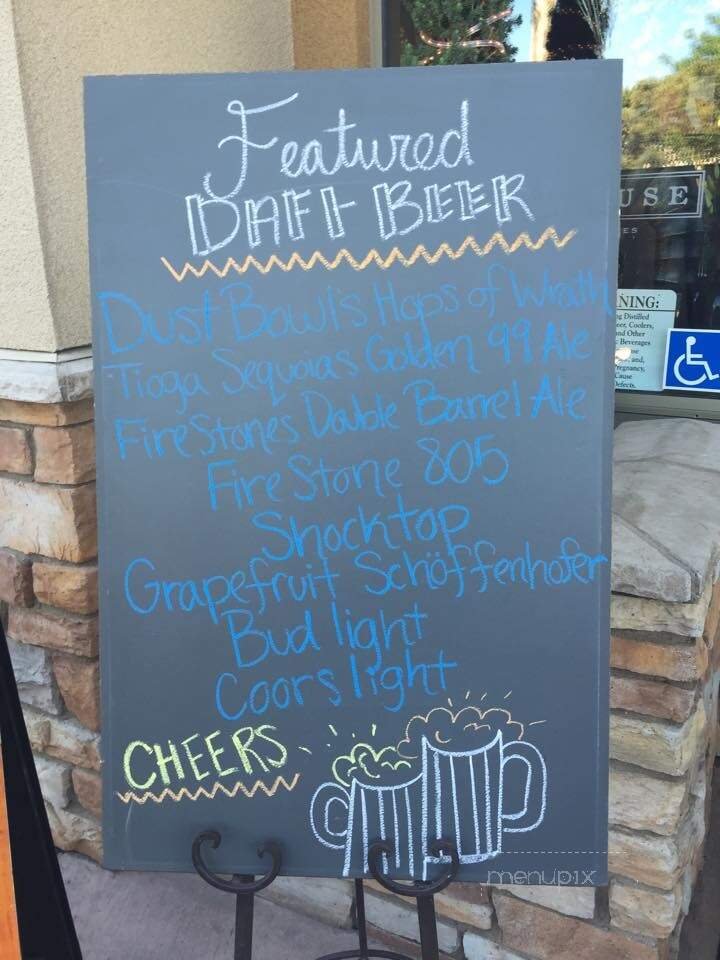 Featured
DAFT BEER
Dust Bowl's Hops of Wrath
Tioga Sequoias Golden 99 Ale
FireStones Double Barrel Ale
Fire Stone 805
Shocktop
Grapefruit Schöffenhofer
Bud light
Coors light
CHEERS
menupix
USE
ES
NING:
ng Distilled
eer, Coolers,
nd Other
Beverages
and,
regnancy,
Cause
Defects.